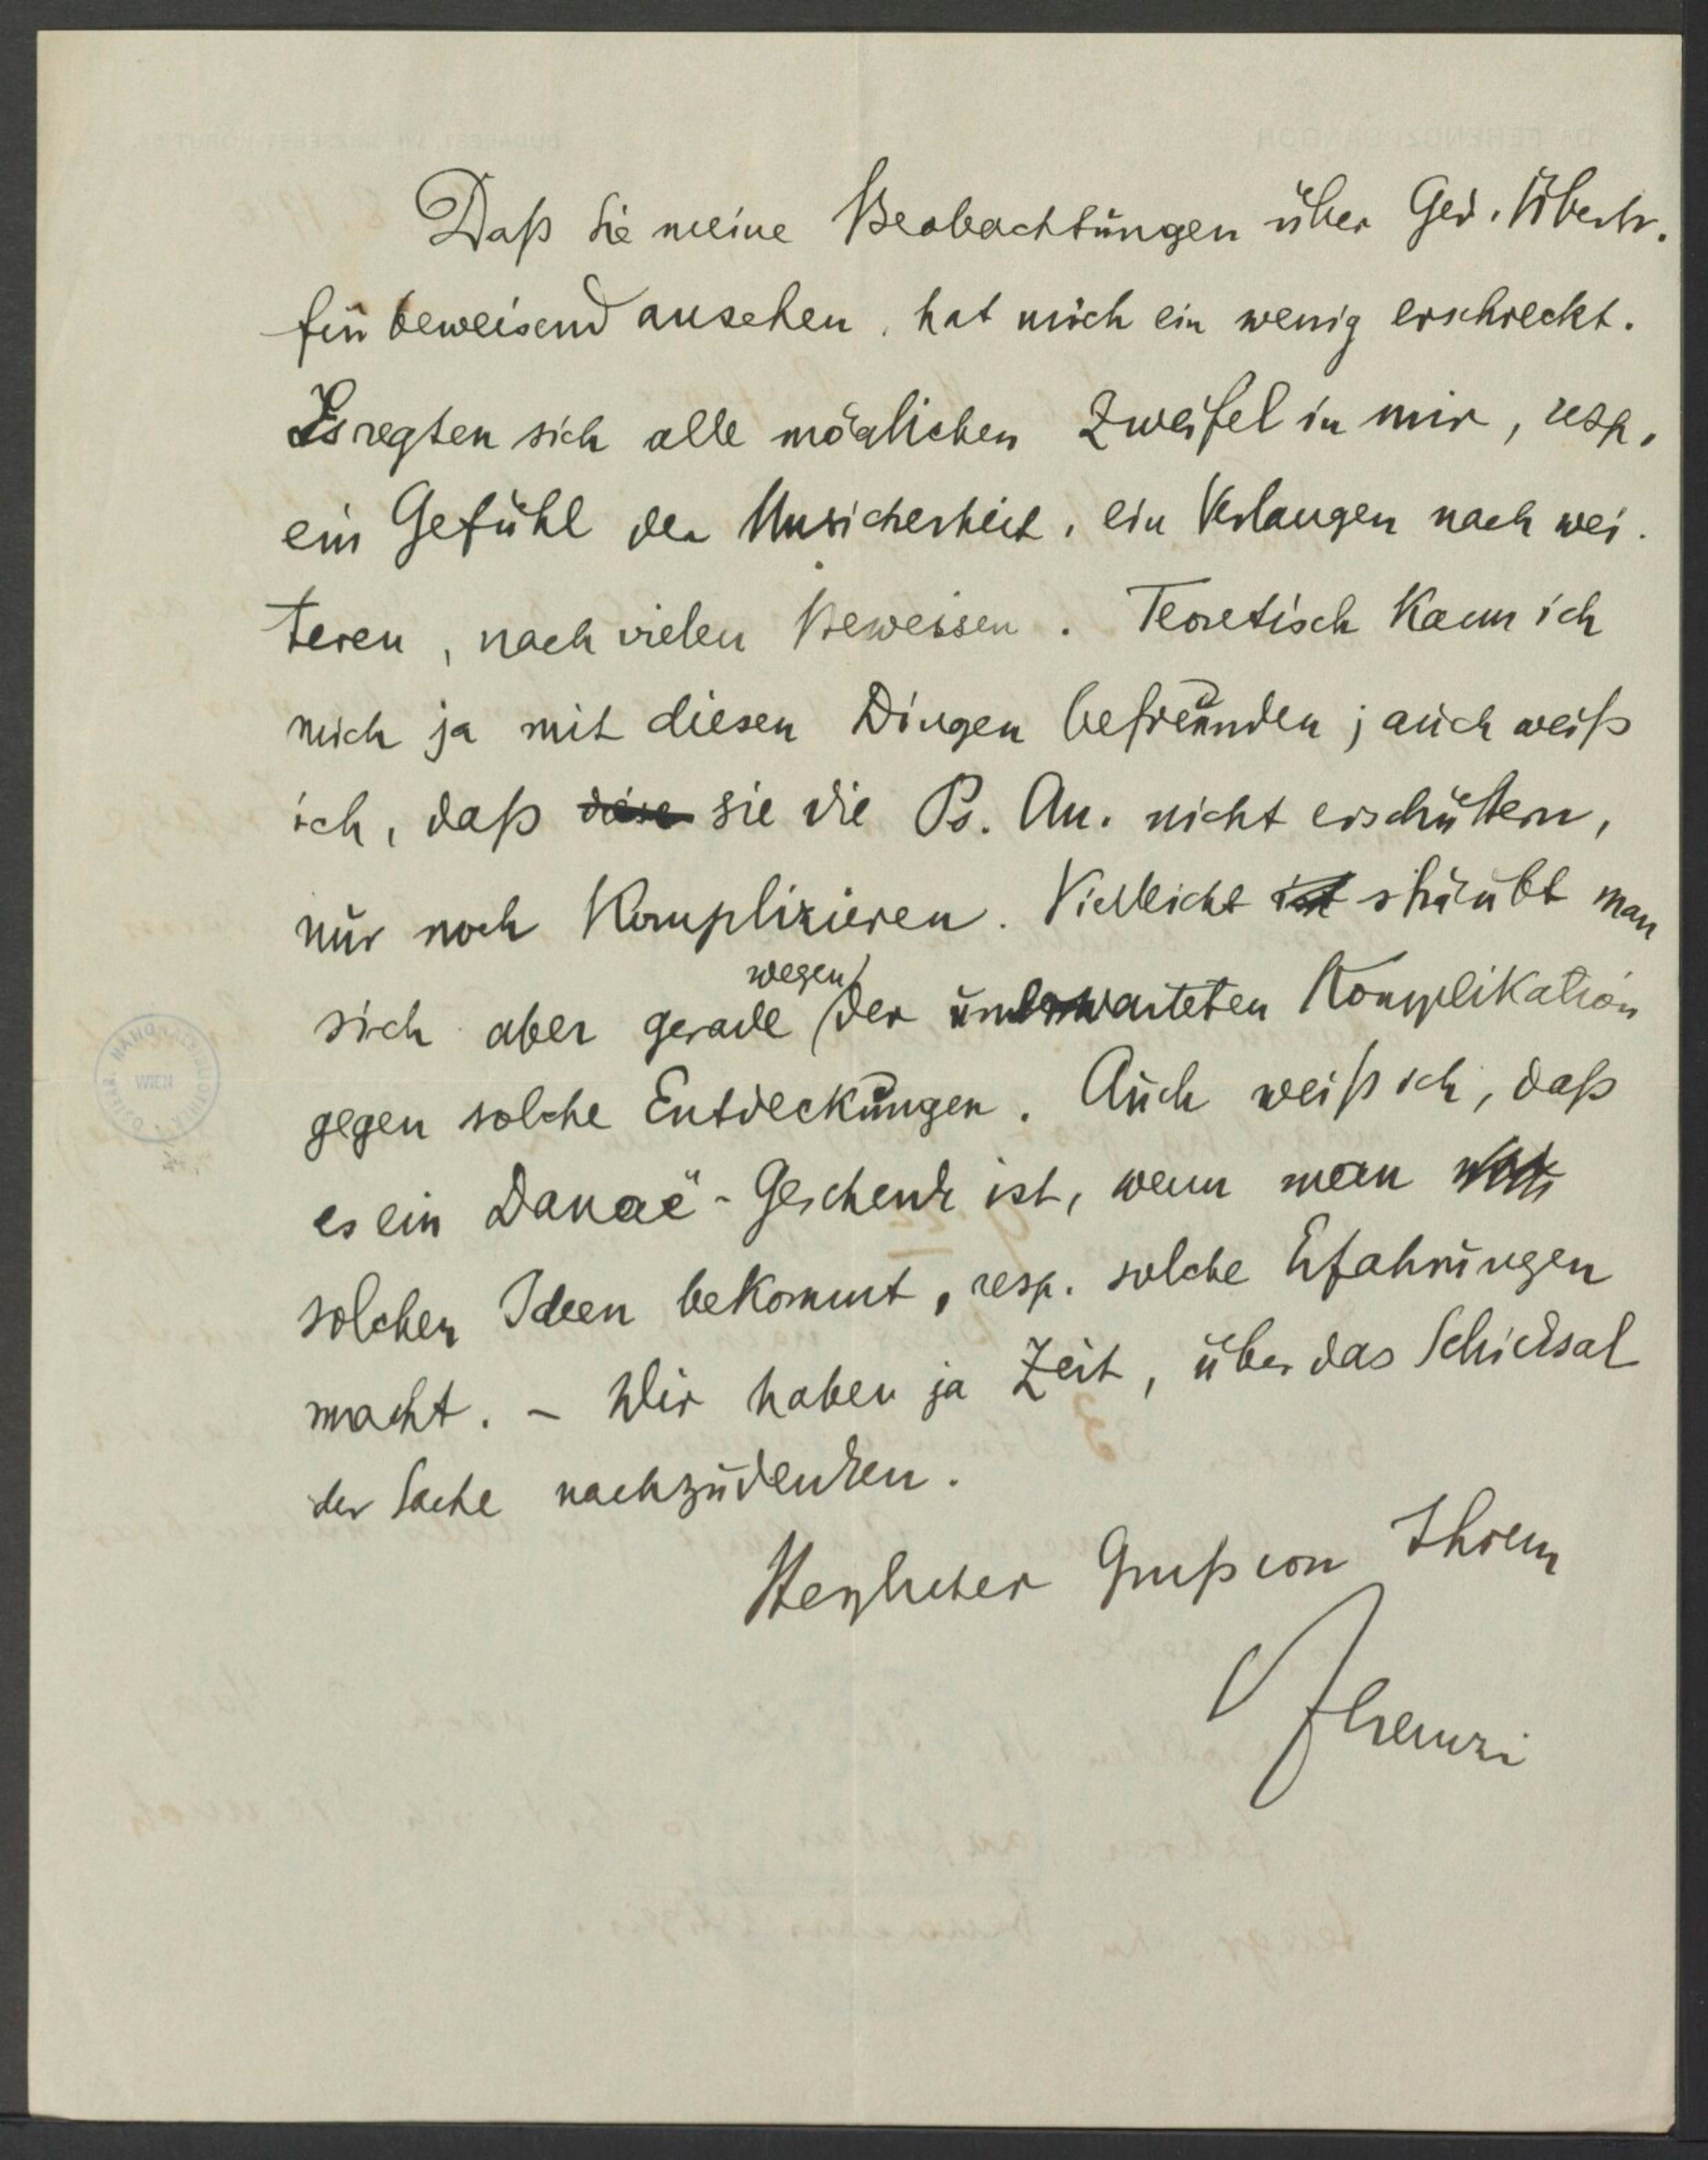 Daß Sie meine Beobachtungen über Ged. Übertr.
für beweisend ansehen, hat mich ein wenig erschreckt.
Es regten sich alle möglichen Zweifel in mir, resp.
ein Gefühl der Unsicherheit, ein Verlangen nach wei-
teren, nach vielen Beweisen. Teoretisch kann ich
mich ja mit diesen Dingen befreunden; auch weiß
ich, daß diese sie die Ps. An. nicht erschüttern,
nur noch komplizieren. Vielleicht ist sträubt man
wegen
sich aber gerade der unerwarteten Komplikation
gegen solche Entdeckungen. Auch weiß ich, daß
es ein Danaë-Geschenk ist, wenn man
solchen Ideen bekommt, resp. solche Erfahrungen
macht. – Wir haben ja Zeit, über das Schicksal
der Sache nachzudenken.
Herzlicher Gruß von Ihrem
Ferenczi
WIEN